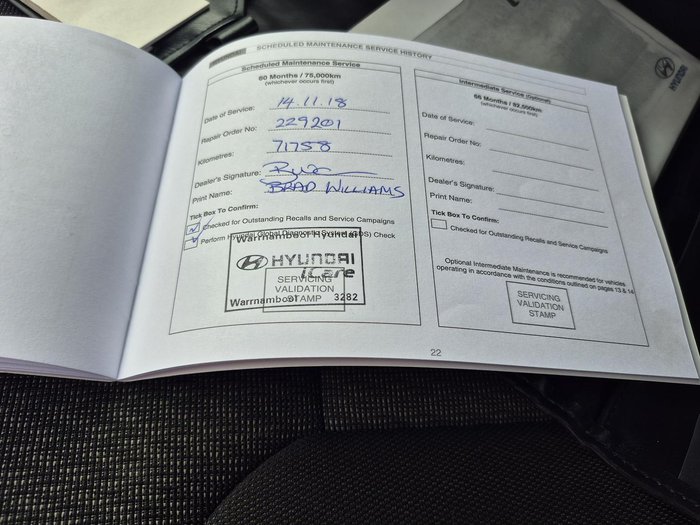 SCHEDULED MAINTENANCE SERVICE HISTORY
Scheduled Maintenance Service
60 Months / 75,000km
(whichever occurs first)
Date of Service: 14.11.18
Repair Order No: 229201
Kilometres: 71758
Dealer's Signature:
Print Name: BRAD WILLIAMS
Tick Box To Confirm:
Checked for Outstanding Recalls and Service Campaigns
Perform Hyundai Global Diagnostic System (GDS) Check
Warrnambool Hyundai
HYUNDAI
iCare
SERVICING
VALIDATION
STAMP
Warrnambool 3282
Intermediate Service (optional)
66 Months / 82,500km
(whichever occurs first)
Date of Service:
Repair Order No:
Kilometres:
Dealer's Signature:
Print Name:
Tick Box To Confirm:
Checked for Outstanding Recalls and Service Campaigns
Optional Intermediate Maintenance is recommended for vehicles
operating in accordance with the conditions outlined on pages 13 & 14
SERVICING
VALIDATION
STAMP
22
HYUNDAI